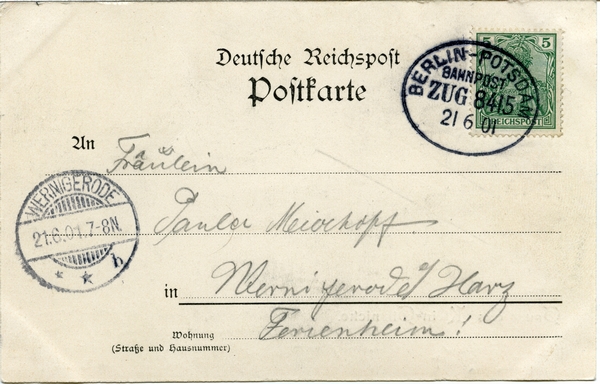 Deutsche Reichspost
Postkarte
5
REICHSPOST
BERLIN-POTSDAM
BAHNPOST
ZUG 8415
21 6 01
An Fräulein
WERNIGERODE
21.6.01.7-8N.
* * b
Paula Meierhoff
in Wernigerode a/Harz
Ferienheim!
Wohnung
(Straße und Hausnummer)